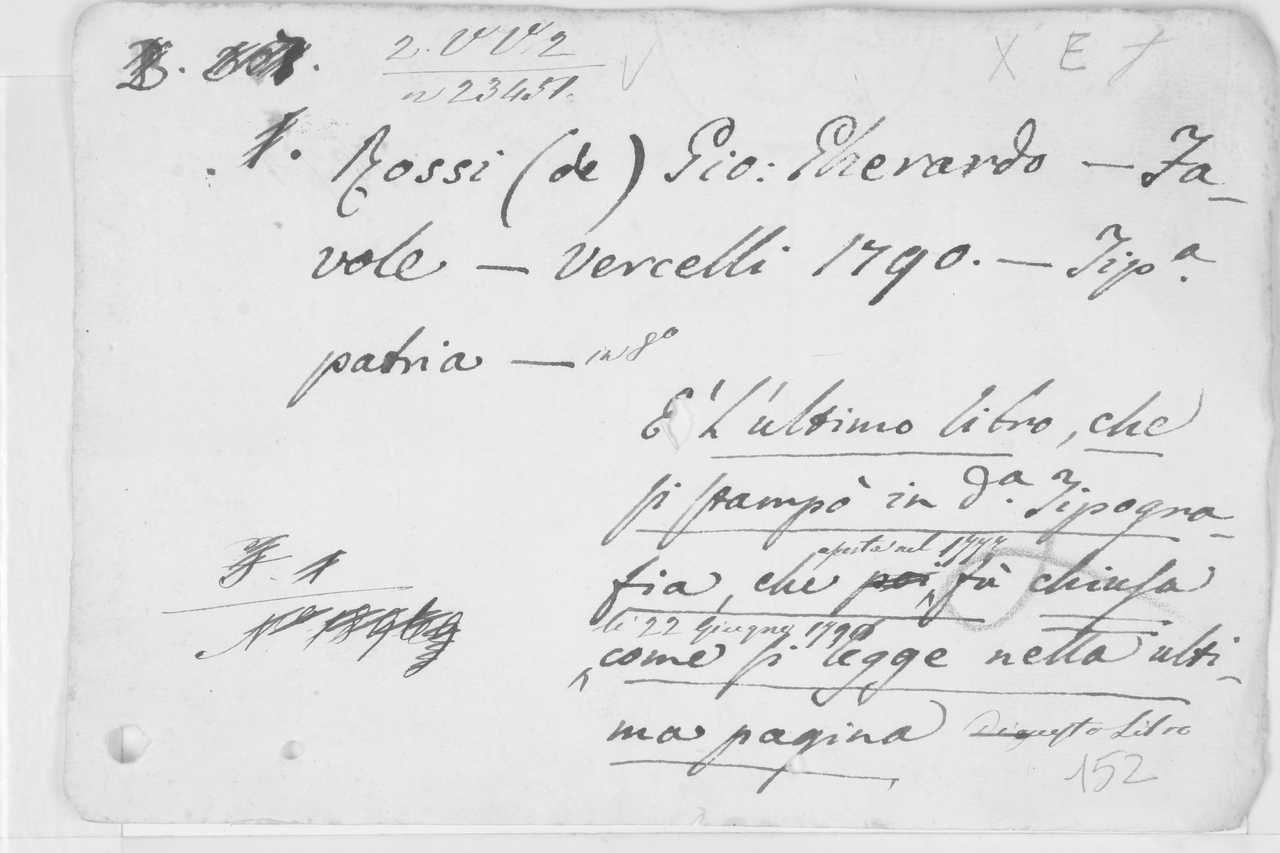 2. VV 2
n 23451.
X E †
1. Rossi (de) Gio: Gherardo — Fa-
vole — Vercelli 1790. — Tip.a
patria — in 8o
E' L'ultimo libro, che
si stampò in d.a Tipogra-
aperta nel 1777
fia, che poi fù chiusa
li 22 Giugno 1790
come si legge nella ulti-
ma pagina Di questo Libro
152